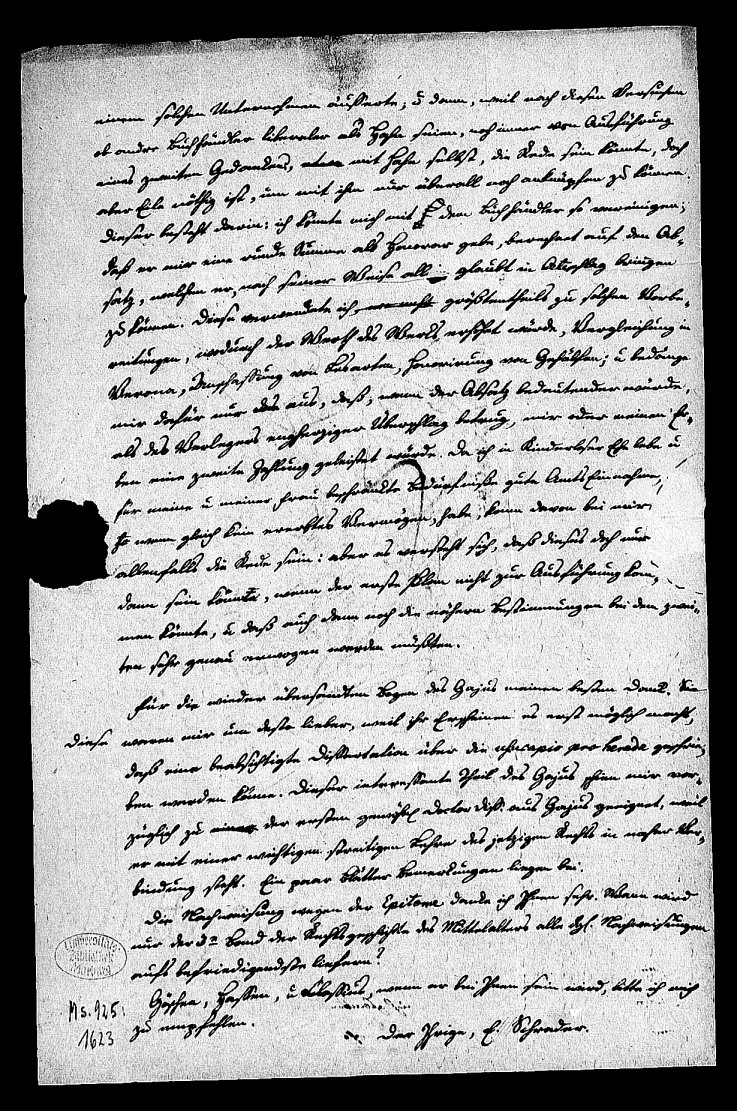 einem solchen Unternehmen äusserte; u dann, weil nach diesen Versuchen
ob andre Buchhändler liberaler als Hahn seien, noch immer von Ausführung
eines zweiten Gedankens, mit Hahn selbst, die Rede sein könnte, doch
aber Eile nöthig ist, um mit ihm nur überall noch anknüpfen zu können.
Dieser besteht darin: ich könnte mich mit dem Buchhändler so vereinigen;
daß er mir eine runde Summe als Honorar gebe, berechnet auf den Ab-
satz, welchen er, nach seiner Weise all glaubt in Anschlag bringen
zu können. Diese verwendete ich, größtentheils zu solchen Vorbe-
reitungen, wodurch der Werth des Werks erhöhet würde, Vergleichung in
Verona, Anschaffung von Lesarten, Honorirung von Gehülfen; u bedänge
mir dafür nur das aus, daß, wenn der Absatz bedeutender würde,
als des Verlegers engherziger Überschlag betrug, mir oder meinen Er-
ben eine zweite Zahlung geleistet würde. Da ich in kinderloser Ehe lebe u
für meine u meiner Frau beschränkte Bedürfniße gute Amts Einnahme,
wenn gleich kein ererbtes Vermögen, habe, kann davon bei mir
allenfalls die Rede sein: aber es versteht sich, daß dieses doch nur
dann sein könnte, wenn der erste Plan nicht zur Ausführung kom-
men könnte, u daß auch dann noch die nähern Bestimmungen bei dem zwei-
ten sehr genau erwogen werden müßten.
Für die wieder übersendeten Bogen des Gajus meinen besten Dank. Sie
Diese waren mir um desto lieber, weil ihr Erscheinen es erst möglich macht,
daß eine beabsichtigte Dissertation über die usucapio pro herede geschrie-
ben werden könne. Dieser interessante Theil des Gajus schien mir vor-
züglich zu der ersten Doctor Diss. aus Gajus geeignet, weil
er mit einer wichtigen streitigen Lehre des jetzigen Rechts in naher Ver-
bindung steht. Ein paar Blätter Bemerkungen liegen bei.
Die Nachweisung wegen der Epitome danke ich Ihnen sehr. Wann wird
nur der 3te Band der Rechtsgeschichte des Mittelalters alle dgl. Nachweisungen
aufs befriedigendste liefern?
Göschen, Hassen, u Clossius, wenn er bei Ihnen sein wird, bitte ich mich
zu empfehlen.
Der Ihrige, E. Schrader.
Universitäts
Bibliothek
Marburg
Ms. 925:
1623